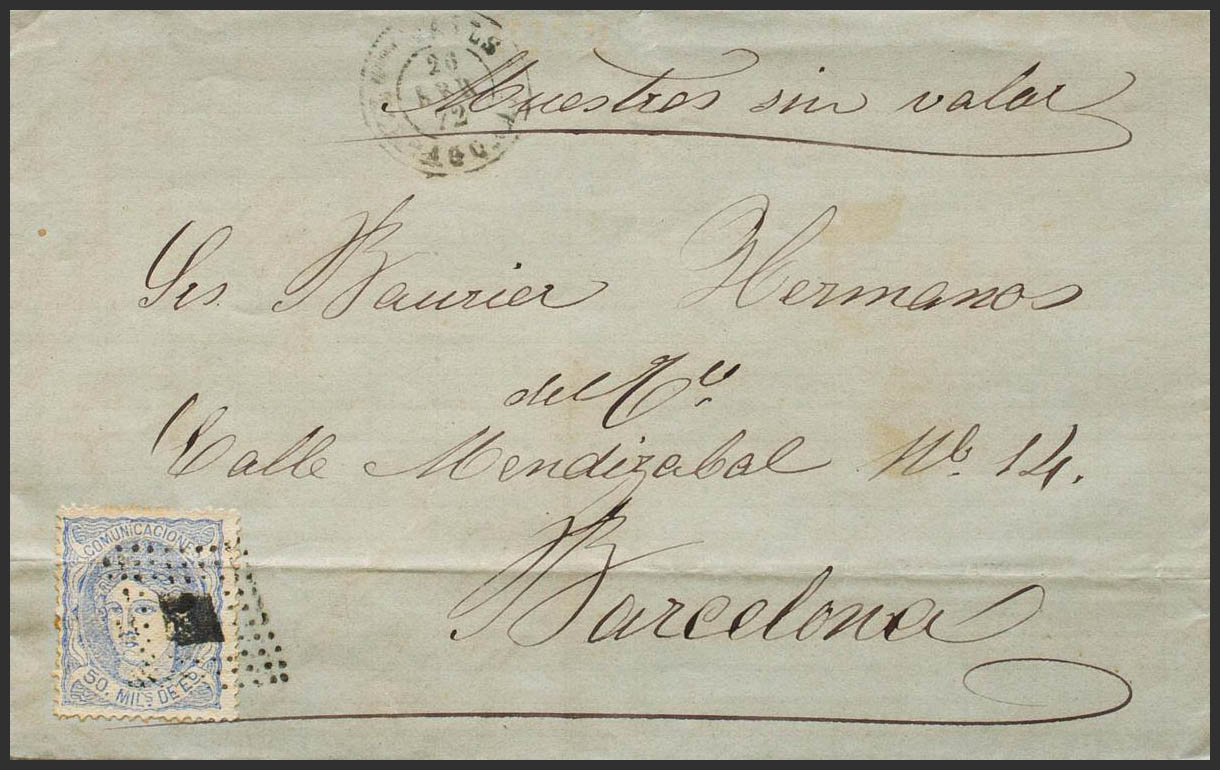 26
ABR
72
Muestras sin valor
Srs. Baurier Hermanos
del Co.
Calle Mendizabal No. 14.
Barcelona
COMUNICACIONES
50. MILS. DE EO.